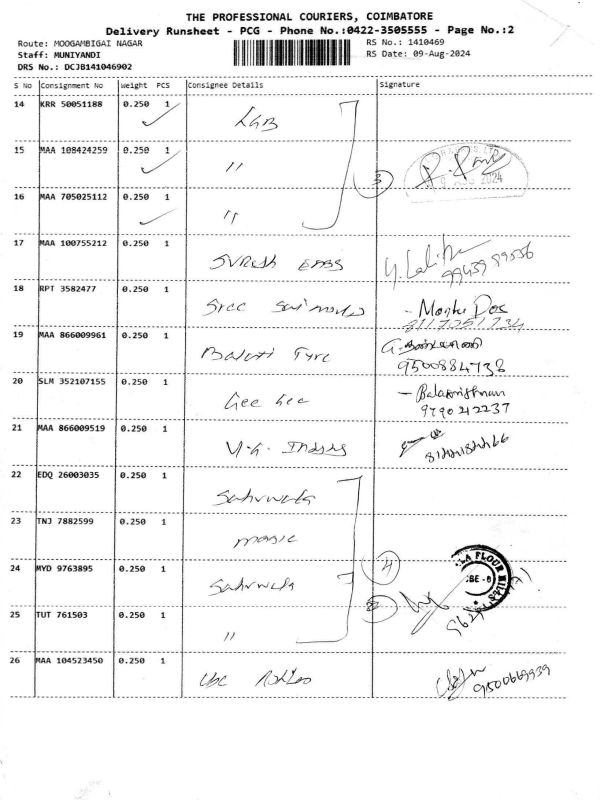 THE PROFESSIONAL COURIERS, COIMBATORE
Delivery Runsheet - PCG - Phone No.:0422-3505555 - Page No.:2
Route: MOOGAMBIGAI NAGAR
RS No.: 1410469
Staff: MUNIYANDI
RS Date: 09-Aug-2024
DRS No.: DCJB141046902
S No Consignment No Weight PCS Consignee Details Signature
14 KRR 50051188 0.250 1 LGB
15 MAA 108424259 0.250 1 "
16 MAA 705025112 0.250 1 "
3
2024
17 MAA 100755212 0.250 1 SURESH
18 RPT 3582477 0.250 1 Sree Sai
8117051734
19 MAA 866009961 0.250 1 Balati Tyre
9500884738
20 SLM 352107155 0.250 1 Gee Gee - Balakrishnan
9790212237
21 MAA 866009519 0.250 1
22 EDQ 26003035 0.250 1
23 TNJ 7882599 0.250 1 magic
24 MYD 9763895 0.250 1
4
FLOUR MILLS
CBE - 6
25 TUT 761503 0.250 1 "
26 MAA 104523450 0.250 1
9500669939